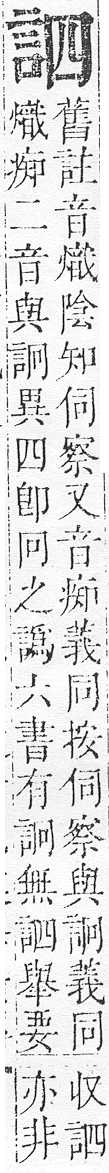 訵
舊註音熾陰知伺察又音痴義同按伺察與詗義同
熾痴二音與詗異四卽冋之譌六書有詗無訵舉要
收訵
亦非